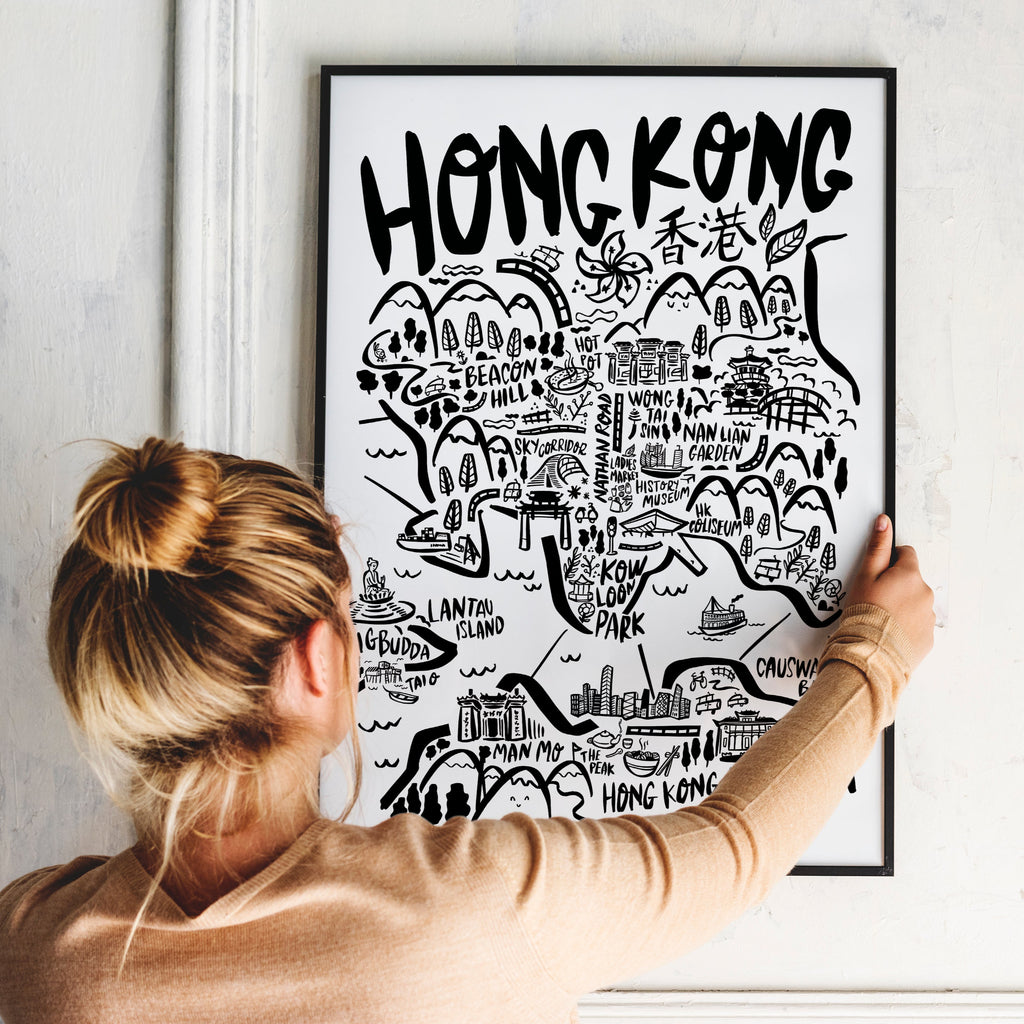 HONG KONG
香港
HOT
POT
BEACON
HILL
NATHAN ROAD
WONG
TAI
SIN
NAN LIAN
GARDEN
SKYCORRIDOR
LADIES
MARKET
HISTORY
MUSEUM
HK
COLISEUM
KOW
LOON
PARK
LANTAU
ISLAND
IGBUDDA
TAI O
CAUSWA
B
MAN MO
THE
PEAK
HONG KONG